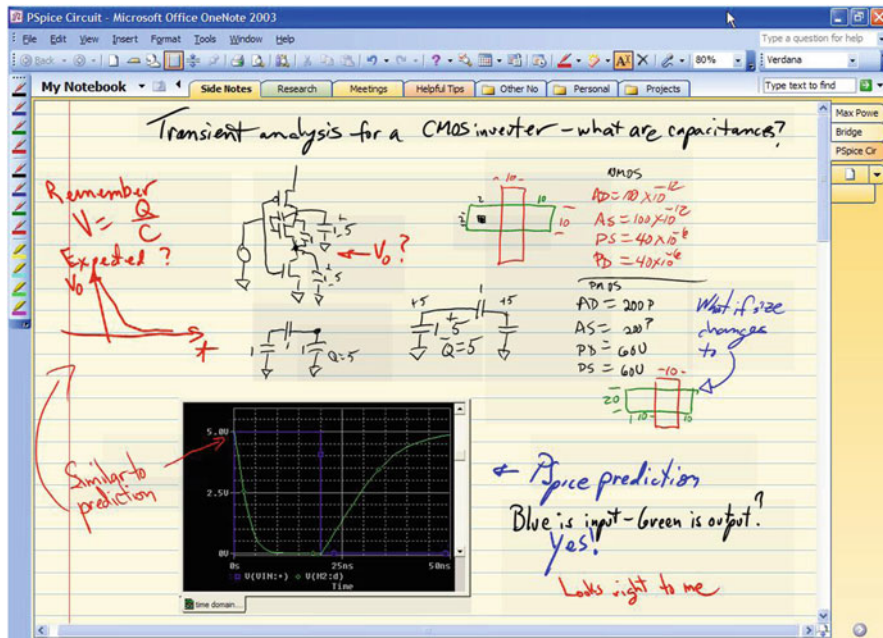 PSpice Circuit - Microsoft Office OneNote 2003
File Edit View Insert Format Tools Window Help
Type a question for help
Back
80%
Verdana
My Notebook
Side Notes
Research
Meetings
Helpful Tips
Other No
Personal
Projects
Type text to find
Max Powe
Bridge
PSpice Cir
Transient analysis for a CMOS inverter - what are capacitances?
Remember
V = Q
C
Expected?
Vo
t
+
1 5
← Vo?
+
1 5
1
1
1
Q=5
+5
1
+5
+
1 5
-
Q=5
-10-
2
10
10
NMOS
AS = 100x10-12
PS = 40x10-6
PD = 40x10-6
PMOS
AD = 200P
AS = 200P
PD = 60U
PS = 60U
What if size
changes
to
-10-
20
10
10
Similar to
prediction
5.0V
2.5V
0V
0s
25ns
50ns
V(VIN:+)
V(M2:d)
Time
time domain...
← PSpice prediction
Blue is input - Green is output?
Yes!
Looks right to me